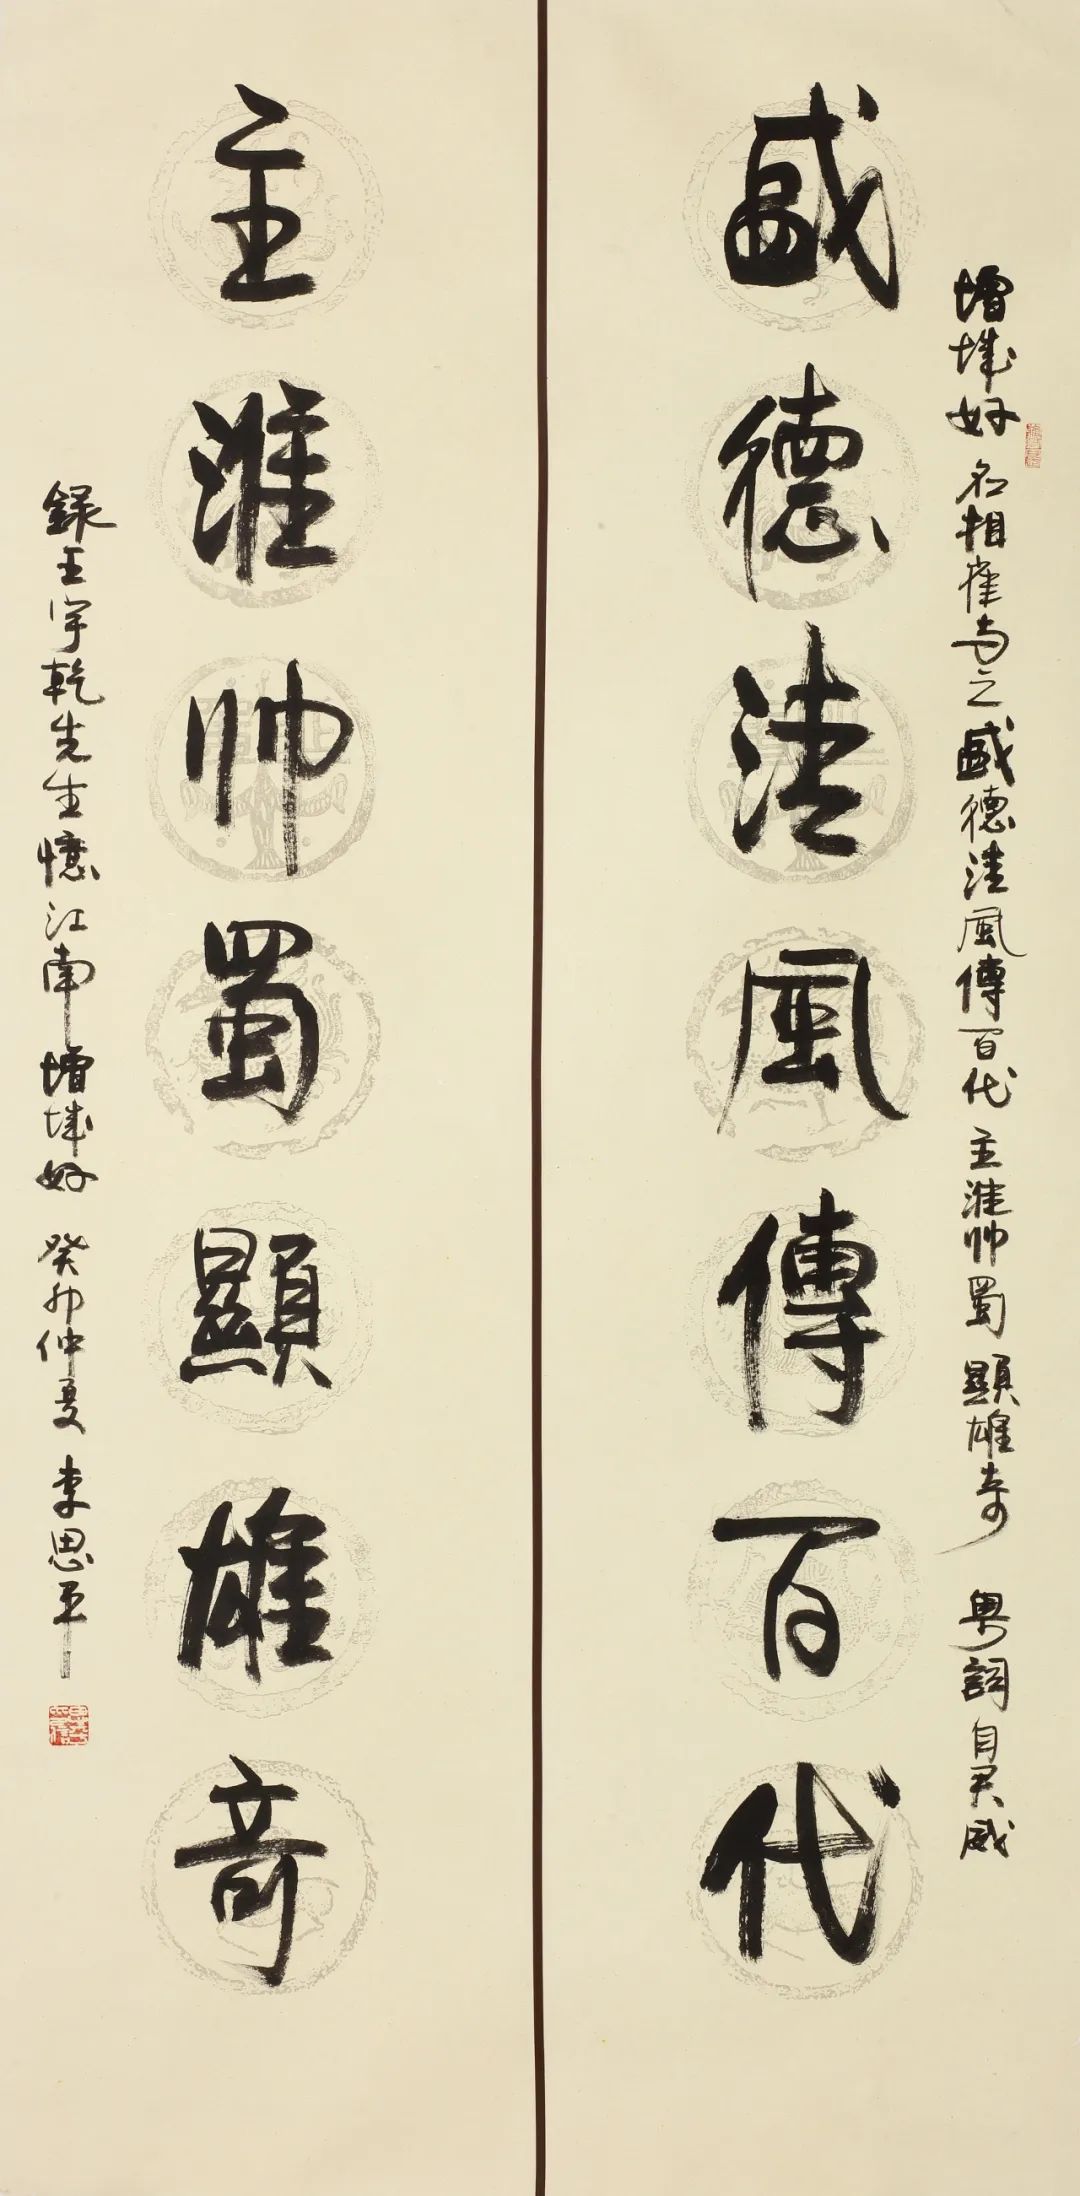 增城好 名相崔与之 盛德清風傳百代 主淮帅蜀 顯雄奇 粤詞自具威
盛德清風傳百代
主淮帅蜀顯雄奇
録王宇乾先生憶江南增城好 癸卯仲夏 李思平